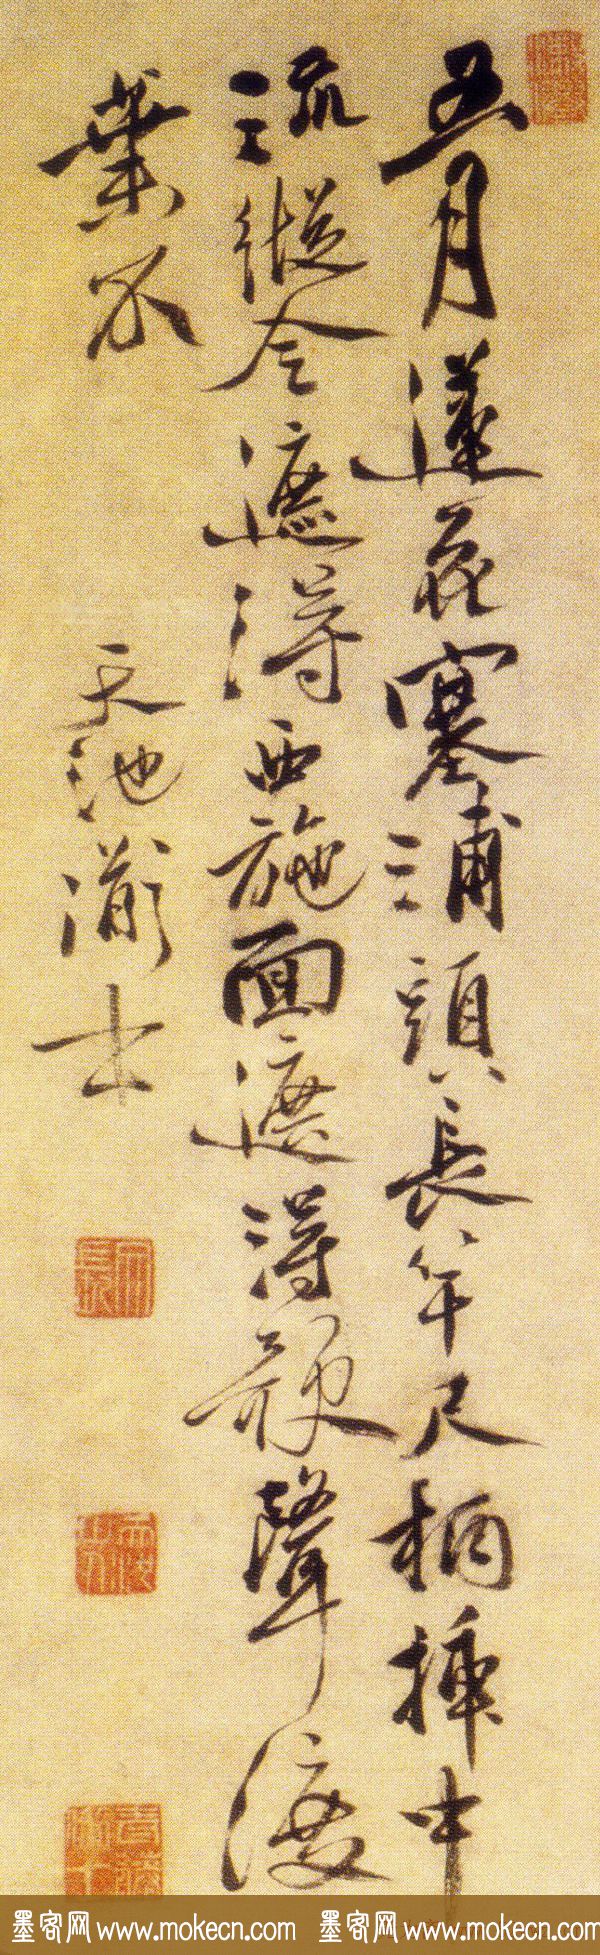 五月蓮花塞浦頭長竿尺柄插中
流縱令遮得西施面遮得歌聲渡
葉不
天池漱士
墨客网 www.mokecn.com 墨客网 www.mokecn.com